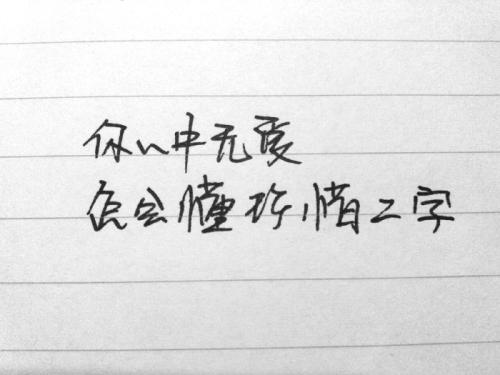 你心中无爱
怎会懂珍惜二字